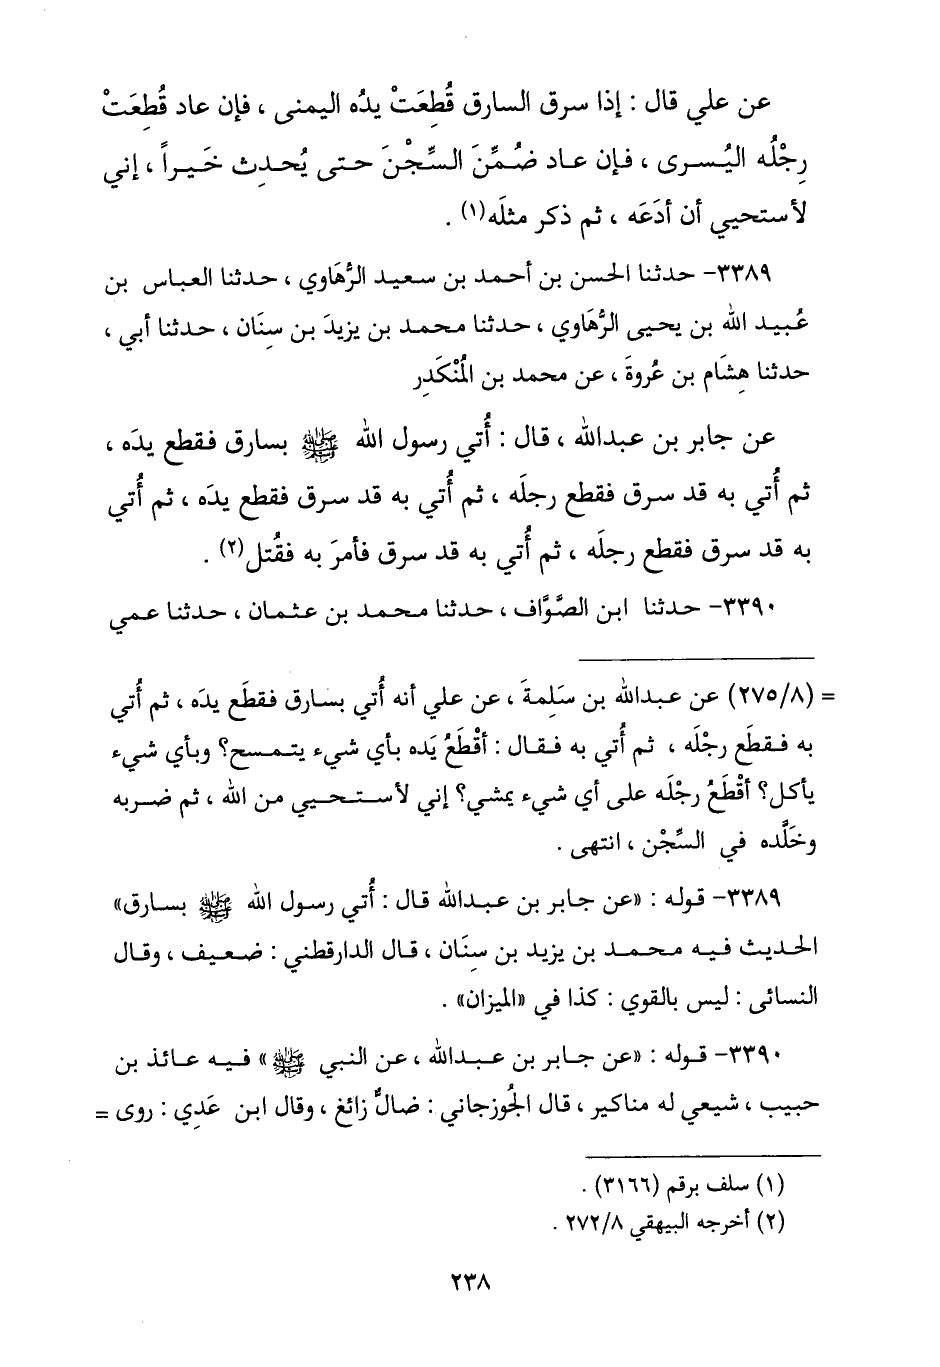 عن علي قال : إذا سرق السارق قُطِعَتْ يدُه اليمنى ، فإن عاد قُطِعَتْ
رِجْلُه اليُسرى ، فإن عاد ضُمِّنَ السِّجْنَ حتى يُحدِث خَيراً ، إني
لأستحيي أن أدَعَه ، ثم ذكر مثلَه(١) .
٣٣٨٩- حدثنا الحسن بن أحمد بن سعيد الرُّهَاوي ، حدثنا العباس بن
عُبيد الله بن يحيى الرُّهَاوي ، حدثنا محمد بن يزيدَ بن سِنَان ، حدثنا أبي ،
حدثنا هِشَام بن عُروةَ ، عن محمد بن المُنْكَدِر
عن جابر بن عبدالله ، قال : أُتي رسول الله ﷺ بسارق فقطع يدَه ،
ثم أُتي به قد سرق فقطع رجلَه ، ثم أُتي به قد سرق فقطع يدَه ، ثم أُتي
به قد سرق فقطع رجلَه ، ثم أُتي به قد سرق فأمرَ به فقُتل(٢) .
٣٣٩٠- حدثنا ابن الصَّوَّاف ، حدثنا محمد بن عثمان ، حدثنا عمي
= (٢٧٥/٨) عن عبدالله بن سَلِمةَ ، عن علي أنه أُتي بسارق فقطَع يدَه ، ثم أُتي
به فقطَع رجْلَه ، ثم أُتي به فقال : أقْطَعُ يَده بأي شيء يتمسح؟ وبأي شيء
يأكل؟ أقْطَعُ رجْلَه على أي شيء يمشي؟ إني لأستحيي من الله ، ثم ضربه
وخَلَّده في السِّجْن ، انتهى .
٣٣٨٩- قوله : «عن جابر بن عبدالله قال : أُتي رسول الله ﷺ بسارق»
الحديث فيه محمد بن يزيد بن سِنَان ، قال الدارقطني : ضعيف ، وقال
النسائى : ليس بالقوي : كذا في «الميزان» .
٣٣٩٠- قوله : «عن جابر بن عبدالله ، عن النبي ﷺ» فيه عائذ بن
حبيب ، شيعي له مناكير ، قال الجُوزجاني : ضالٌ زائغ ، وقال ابن عَدِي : روى =
(١) سلف برقم (٣١٦٦) .
(٢) أخرجه البيهقي ٢٧٢/٨ .
٢٣٨